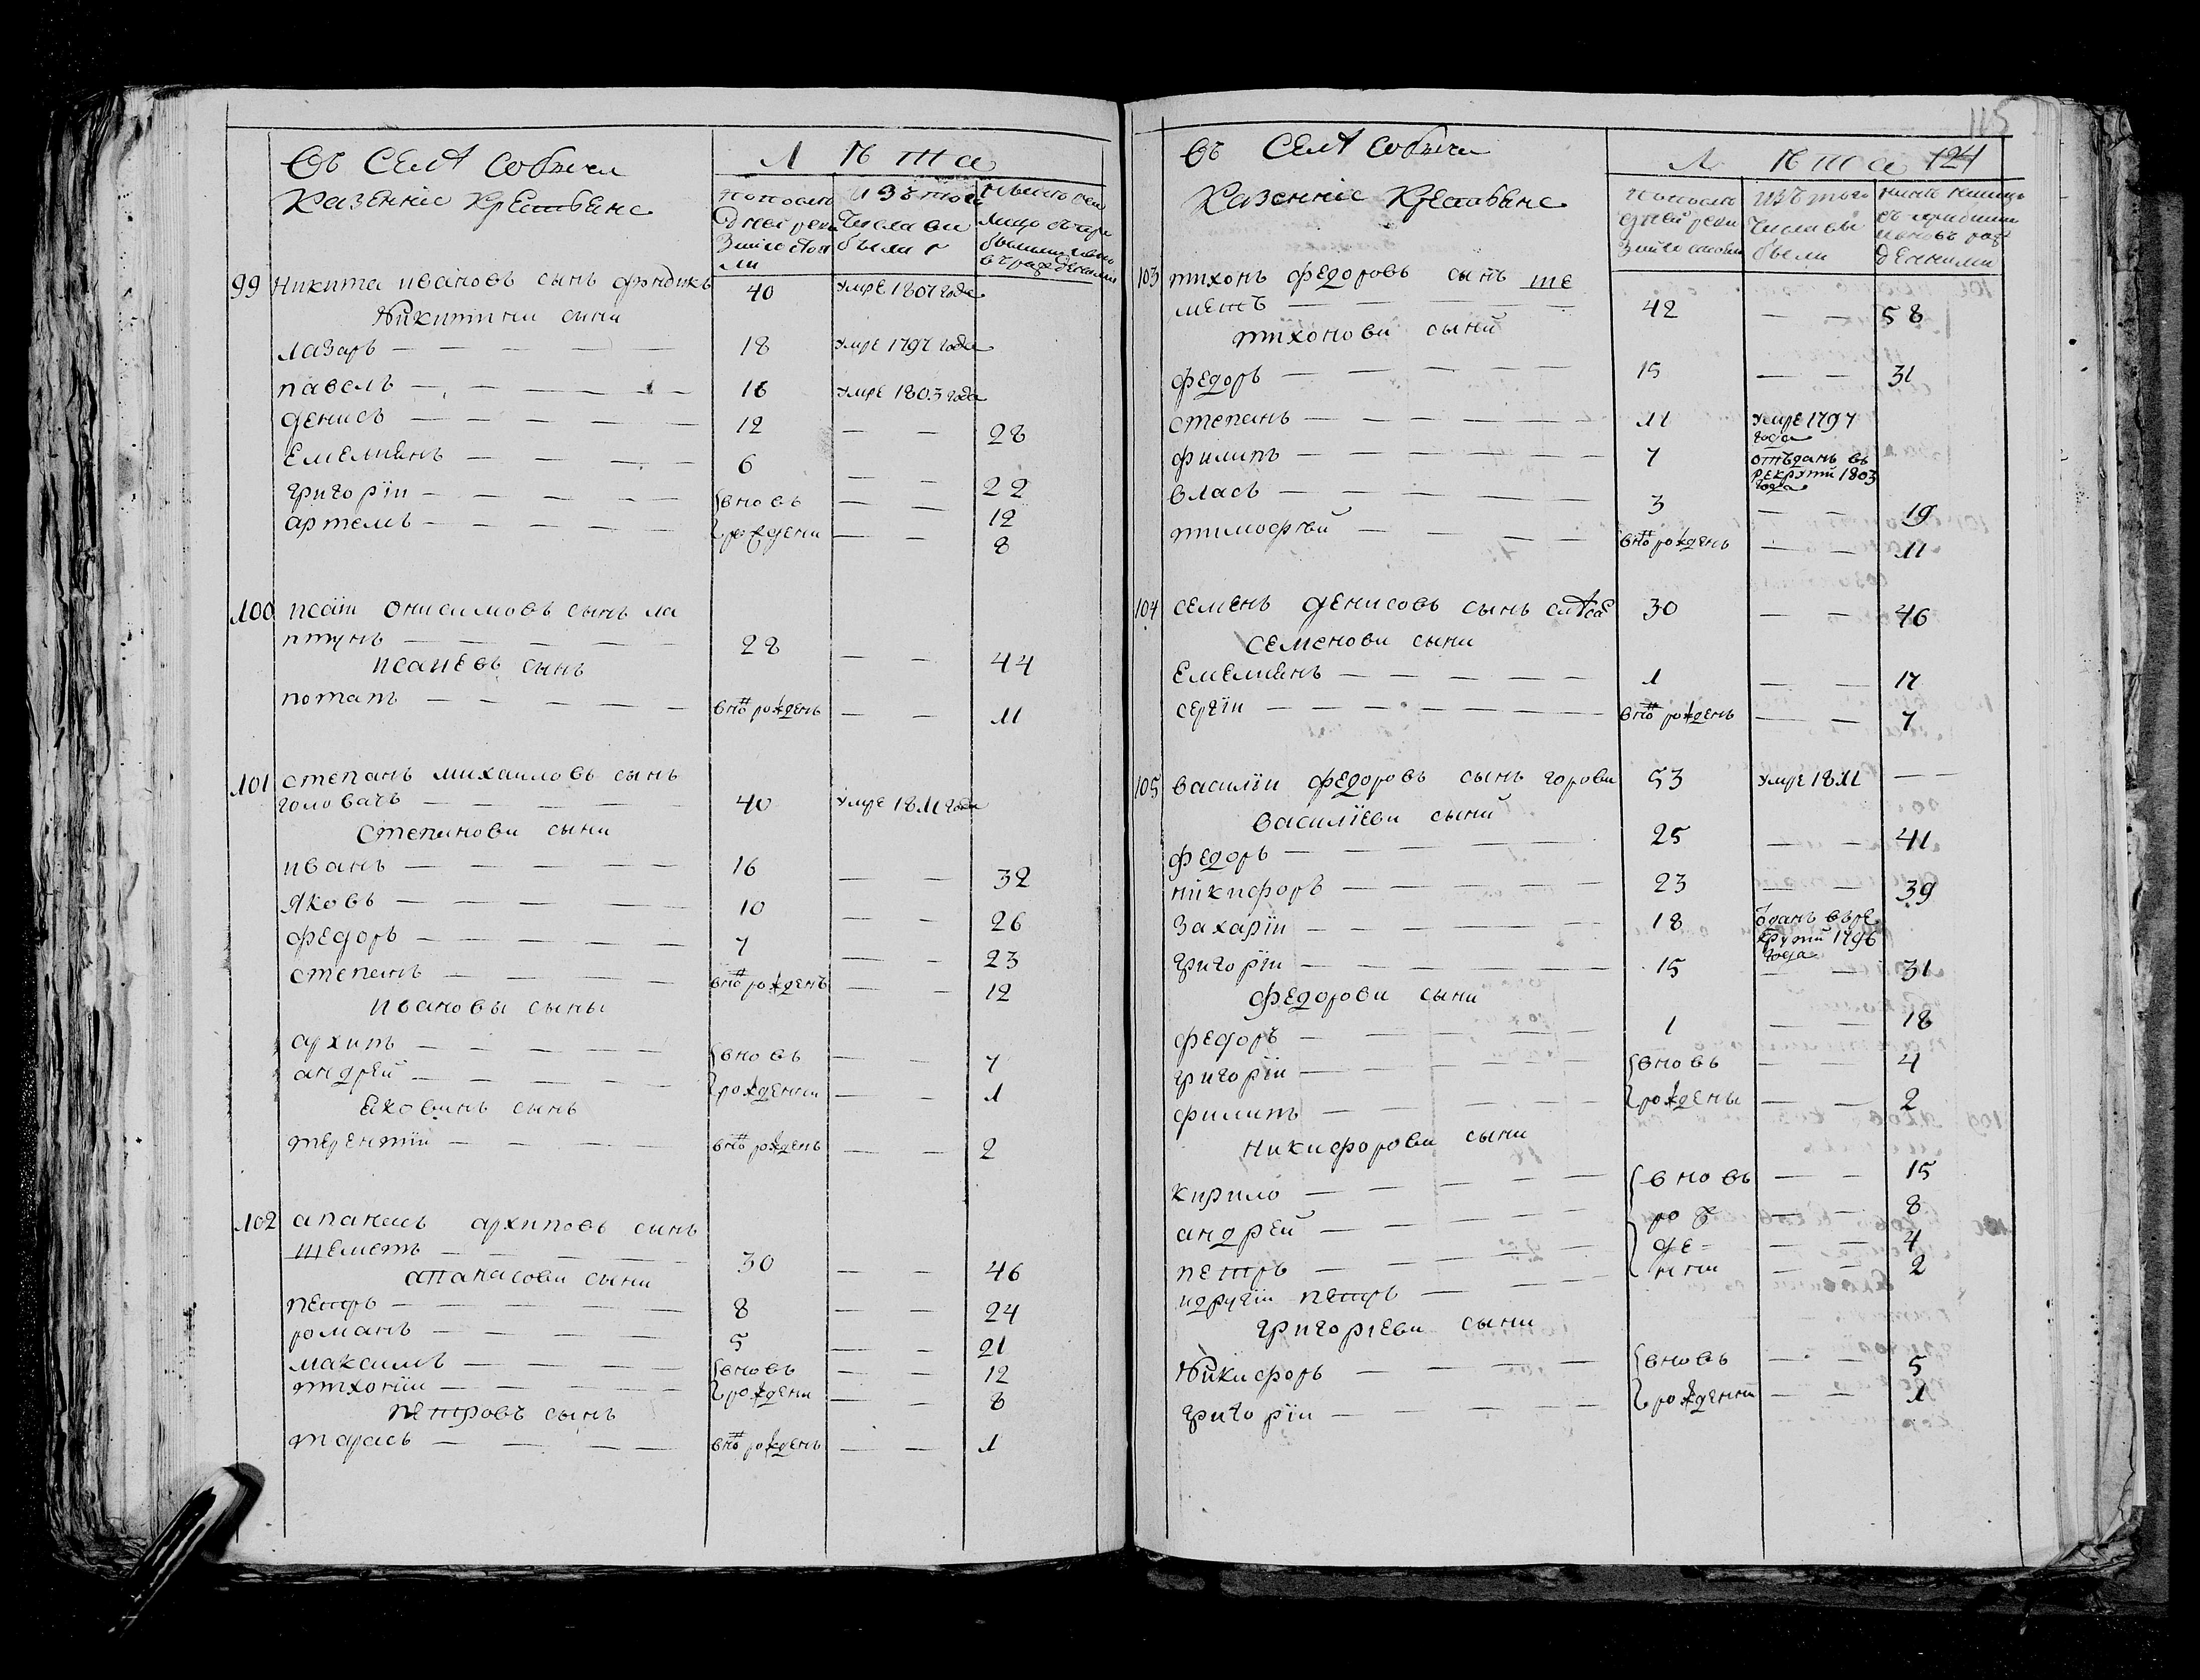 Въ Селѣ Собычи
Казенніе Крестьяне
Лѣта
По последней ревизии состояли
Изъ того числа выбыли
99 Никита ивановъ сынъ 40 умре 1807 года
Никитини сини
Лазаръ — 18 умре 1797 года
павелъ — 16 умре 1803 года
денисъ — 12 — — 28
Емелиянъ — 6 — — 22
григорїи — вновь — — 12
артемъ — рождени — — 8
100 псаїи онисимовъ сынъ ла
птунъ — 28 — — 44
псаиевъ сынъ
потапъ — вно рожденъ — — 11
101 степанъ михаиловъ сынъ
головачъ — 40 умре 1811 года
Степанови сыни
иванъ — 16 — — 32
Яковъ — 10 — — 26
федоръ — 7 — — 23
степанъ — вно рожденъ — — 12
ивановы сыны
архипъ — вновь — — 7
андрей — рожденни — — 1
Яковинъ сынъ
терентїи — вно рожденъ — — 2
102 апанасъ архиповъ сынъ
шеметъ — 30 — — 46
апанасови сыни
петръ — 8 — — 24
романъ — 5 — — 21
максимъ — вновь — — 12
тихонїи — рождени — — 8
петровъ сынъ
тарасъ — вно рожденъ — — 1
115
Въ Селѣ Собычи
Казенніе Крестьяне
Лѣта 124
Изъ того числа выбыли
103 тихонъ федоровъ сынъ ше
метъ — 42 — — 58
тихонови сыни
федоръ — 15 — — 31
степанъ — 11 умре 1797 года
филипъ — 7 отъданъ въ рекрути 1803 года
власъ — 3 — — 19
тимофѣй — вно рожденъ — — 11
104 семенъ денисовъ сынъ 30 — — 46
Семенови сыни
Емелиянъ — 1 — — 17
сергїи — вно рожденъ — — 7
105 василїи федоровъ сынъ горови 53 умре 1811 — —
василїеви сыни
федоръ — 25 — — 41
никифоръ — 23 — — 39
Захарїи — 18 ѿданъ въ рекрути 1796 года
григорїи — 15 — — 31
федорови сыни
федоръ — 1 — — 18
григорїи — вновь — — 4
филипъ — рождены — — 2
Никифорови сыни
кирило — вновь — — 15
андрей — рож — — 8
петръ — де — — 4
и другїи петръ — нни — — 2
григориеви сыни
Никифоръ — вновь — — 5
григорїи — рожденни — — 1